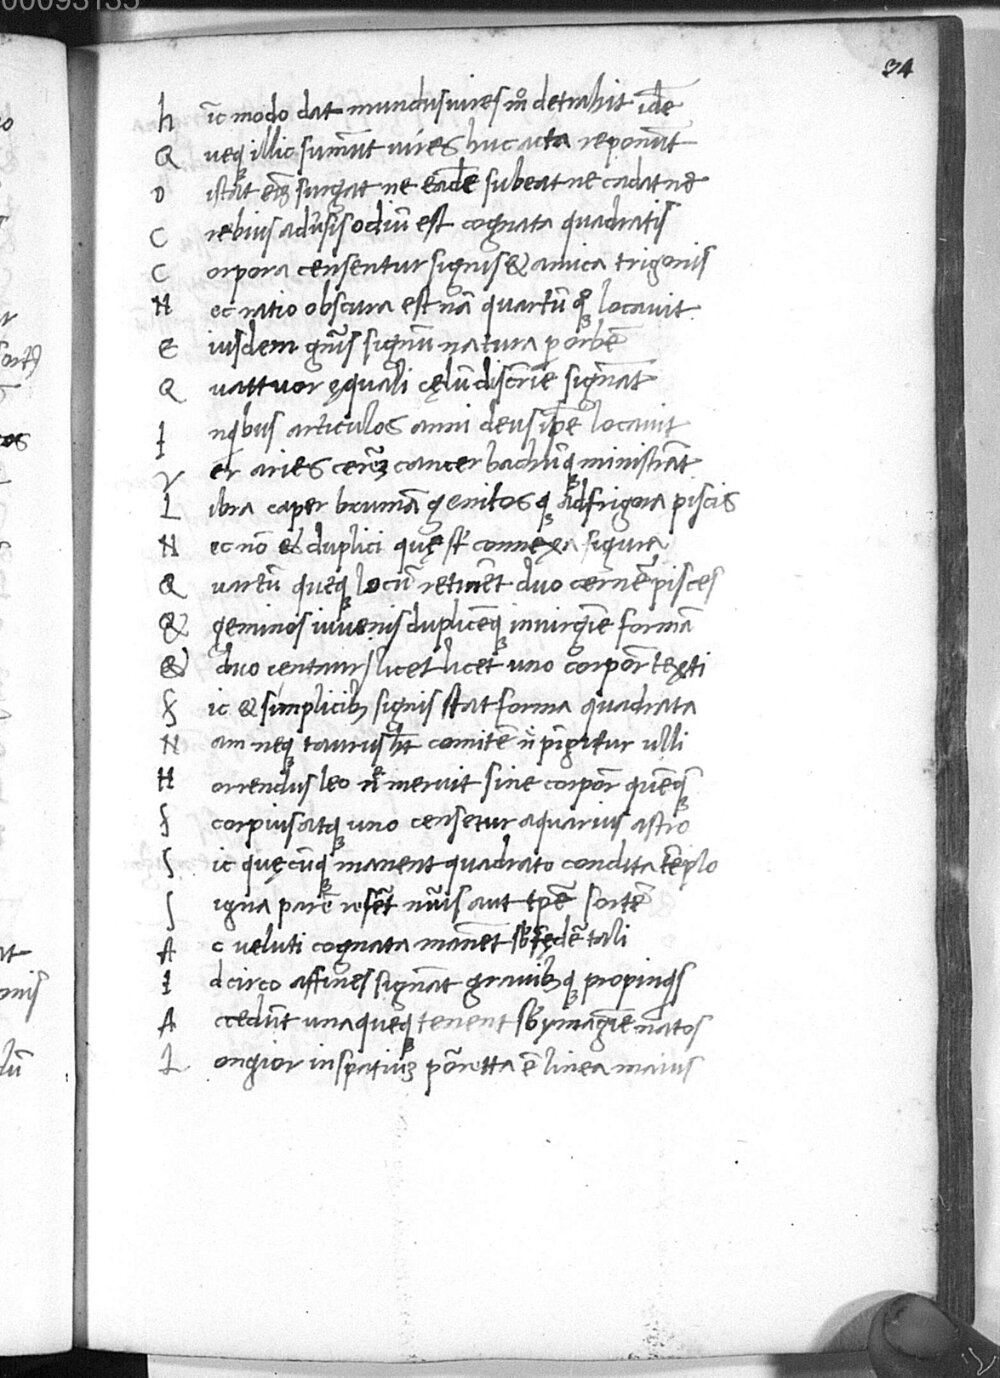 00093135
34
h ic̄ modo dat mundus uires m̊ detrahit idē
Q ueq; illic sumūt uires huc acta reponūt
D istat eīz surgat ne eadē subeat ne cadat ne
C rebius aduersis odiū est cognata quadratis
C orpora censentur signis & amica trigonis
N ec ratio obscura est nā quartū q; locauit
E iusdem gn̄is signū natura p orbē
Q uattuor ęquali cęlū discrīe signāt
I n qbus articulos anni deus ip̄e locauit
V er aries cererē cancer bachūq; ministrāt
L ibra caper brumā genitosq; ad frigora piscis
N ec nō & duplici quę st̄ connexa figura
Q uartū queq; locū retinēt duo cernē pisces
& geminos iuuenis duplicēq; in uirgīe formā
& duo centauri licet licet uno corpore texti
S ic & simplicib; signis stat forma quadrata
N am neq; taurus ht̄ comitē n̄ pīgitur ulli
H orrendus leo n̄ meruit sine corpore quēq;
S corpius atq; uno censetur aquarius astro
S ic quęcūq; manent quadrato condita tēplo
S igna parē referūt nūis aut tp̄e sortē
A c ueluti cognata manēt sb fędere tali
I dcirco affines signāt gradib;q; propinqs
A ccedūt unaqueq; tenent sb ymagīe natos
L ongior in spatiuz porrecta ē linea maius